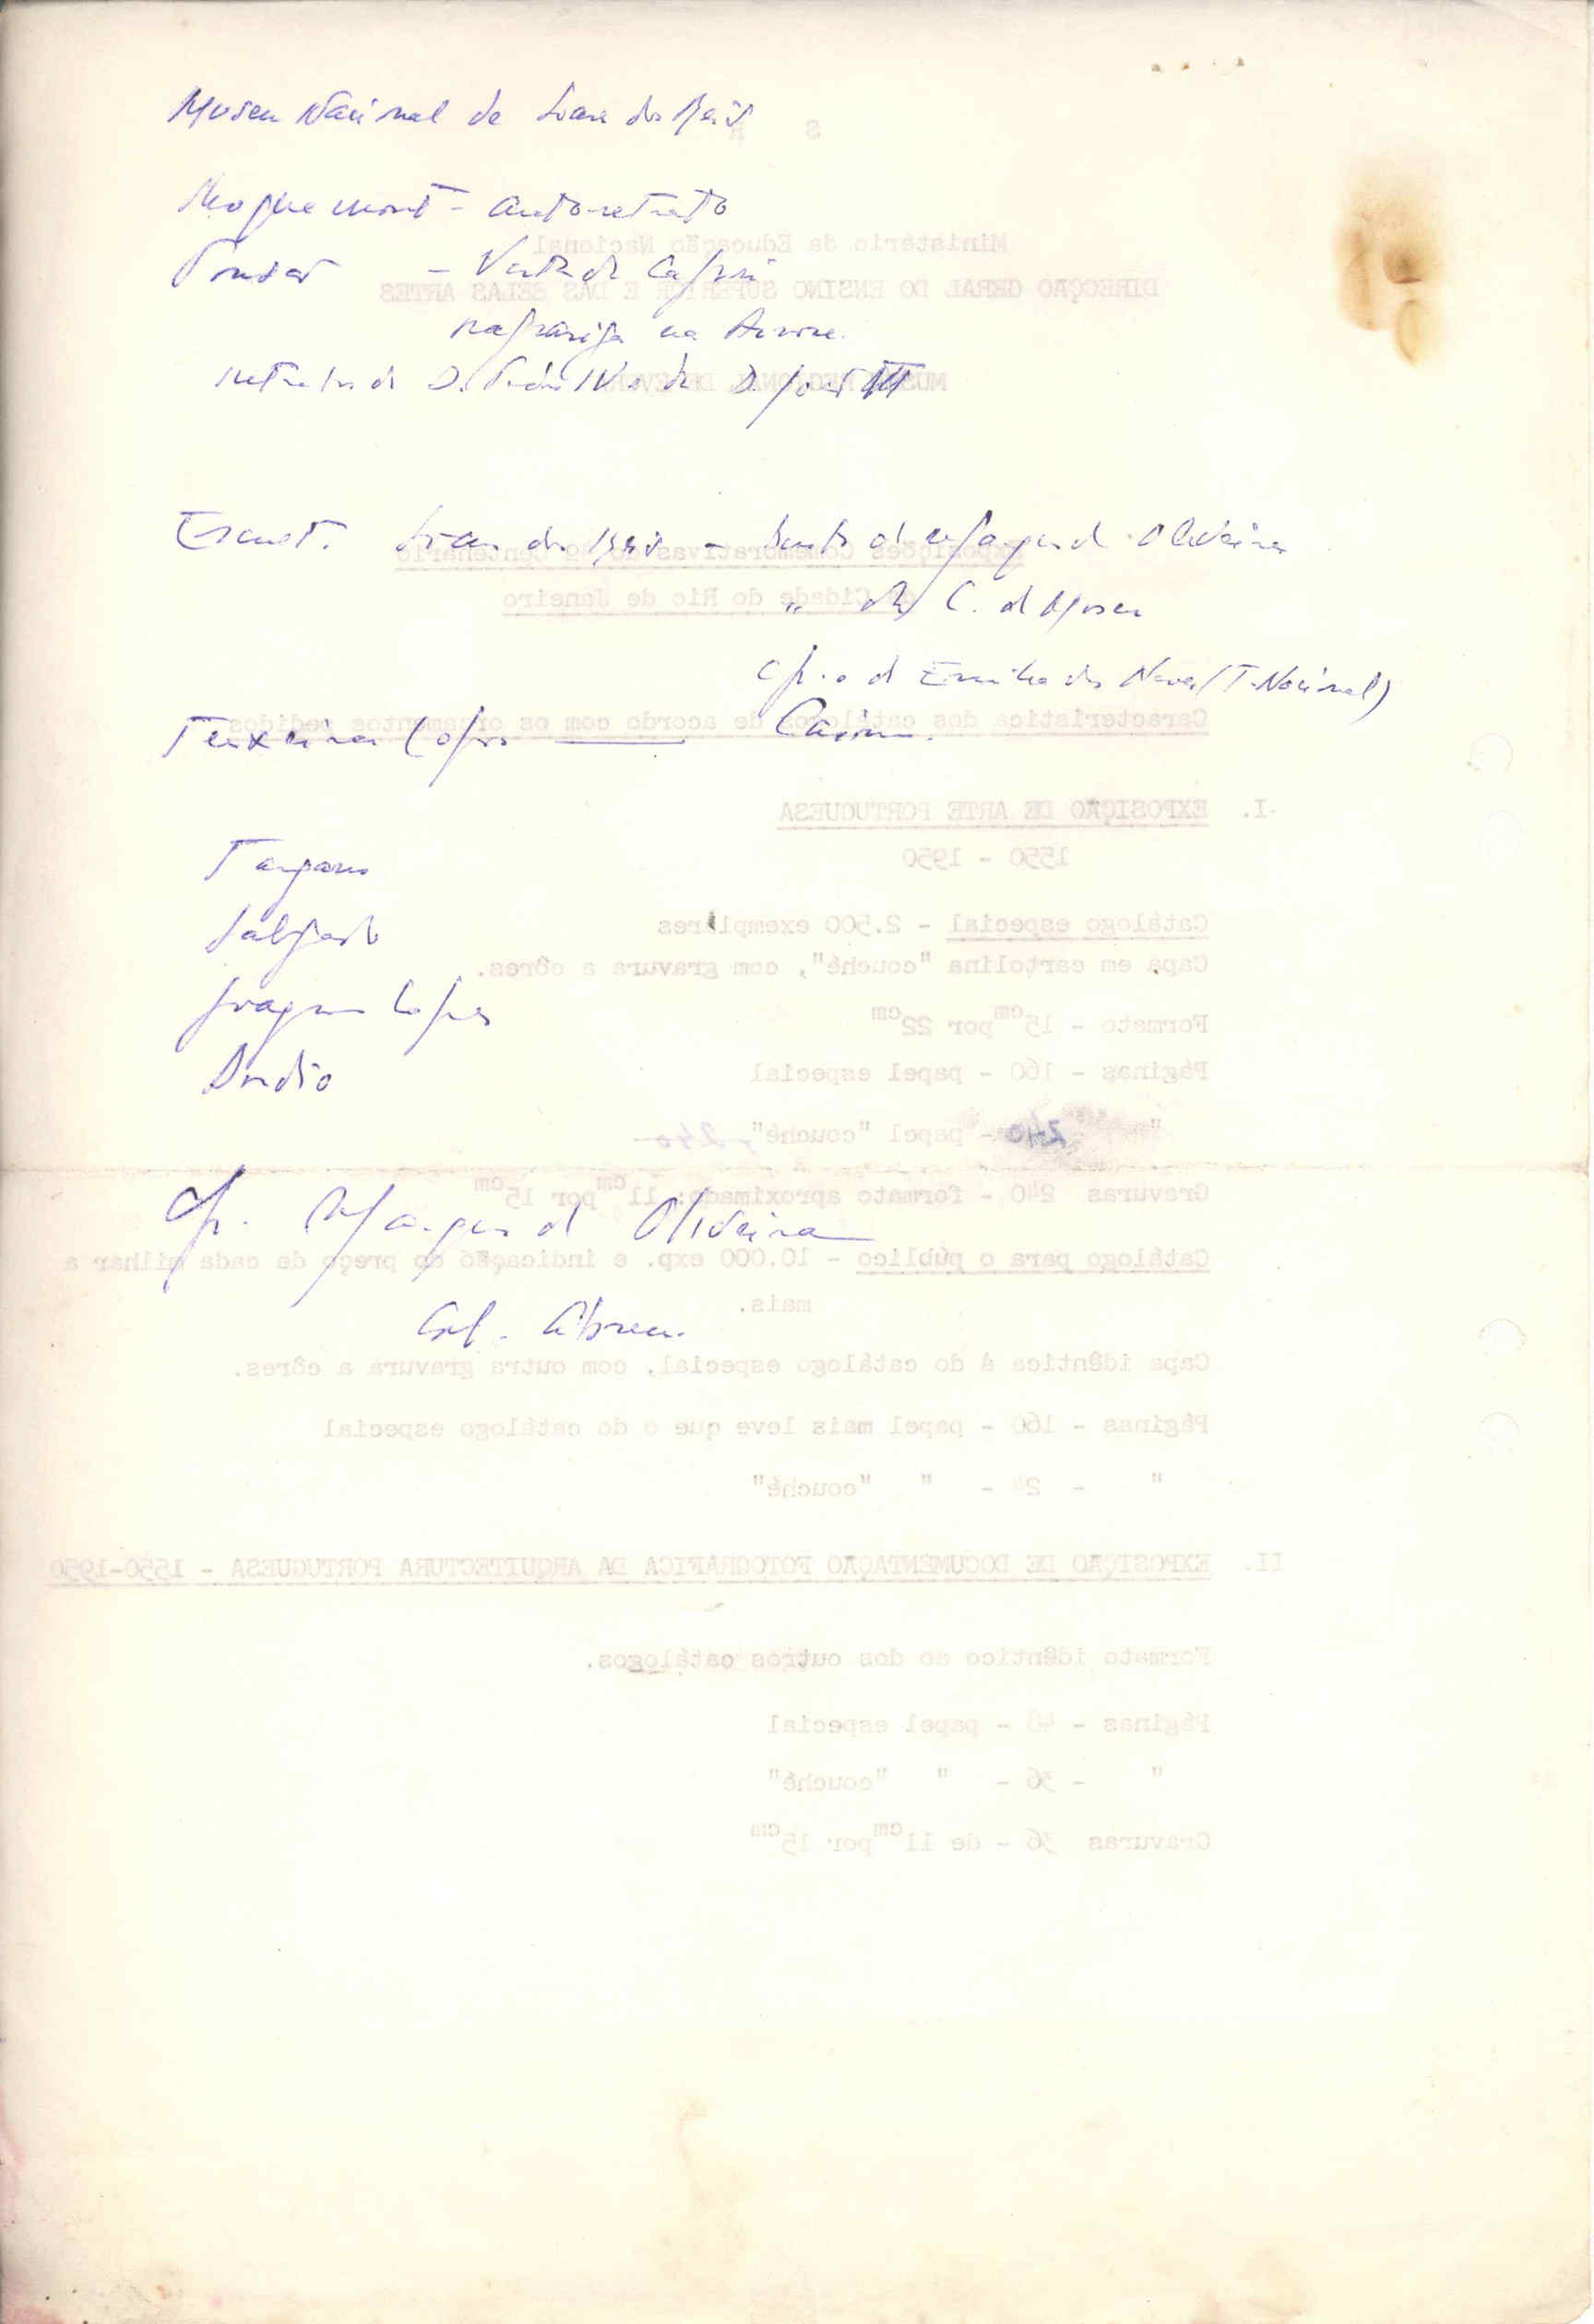 Museu Nacional de Soares dos Reis
Roquemont - auto-retrato
Pousão - Vista de Capri
rapariga na Árvore.
retratos de D. Pedro IV e de D.
Escult. Soares dos Reis - busto de Marques de Oliveira
" do C. do Museu
e o de Emilia das Neves (T. Nacional)
Teixeira Lopes — Caim.
Salgado
Joaquim Lopes
Dordio
Marques de Oliveira
Col. Abreu.
S R
Ministério da Educação Nacional
DIRECÇÃO GERAL DO ENSINO SUPERIOR E DAS BELAS ARTES
MUSEU REGIONAL DE ÉVORA
Exposições Comemorativas do 4º Centenário
da Cidade do Rio de Janeiro
Característica dos catálogos de acordo com os orçamentos pedidos
I. EXPOSIÇÃO DE ARTE PORTUGUESA
1550 - 1950
Catálogo especial - 2.500 exemplares
Capa em cartolina "couché", com gravura a côres.
Formato - 15cm por 22cm
Páginas - 160 - papel especial
" 240 - papel "couché", 240
Gravuras 240 - formato aproximado: 11cm por 15cm
Catálogo para o público - 10.000 exp. e indicação do preço de cada milhar a
mais.
Capa idêntica à do catálogo especial, com outra gravura a côres.
Páginas - 160 - papel mais leve que o do catálogo especial
" - 24 - " "couché"
II. EXPOSIÇÃO DE DOCUMENTAÇÃO FOTOGRÁFICA DA ARQUITECTURA PORTUGUESA - 1550-1950
Formato idêntico ao dos outros catálogos.
Páginas - 48 - papel especial
" - 36 - " "couché"
Gravuras 36 - de 11cm por 15cm